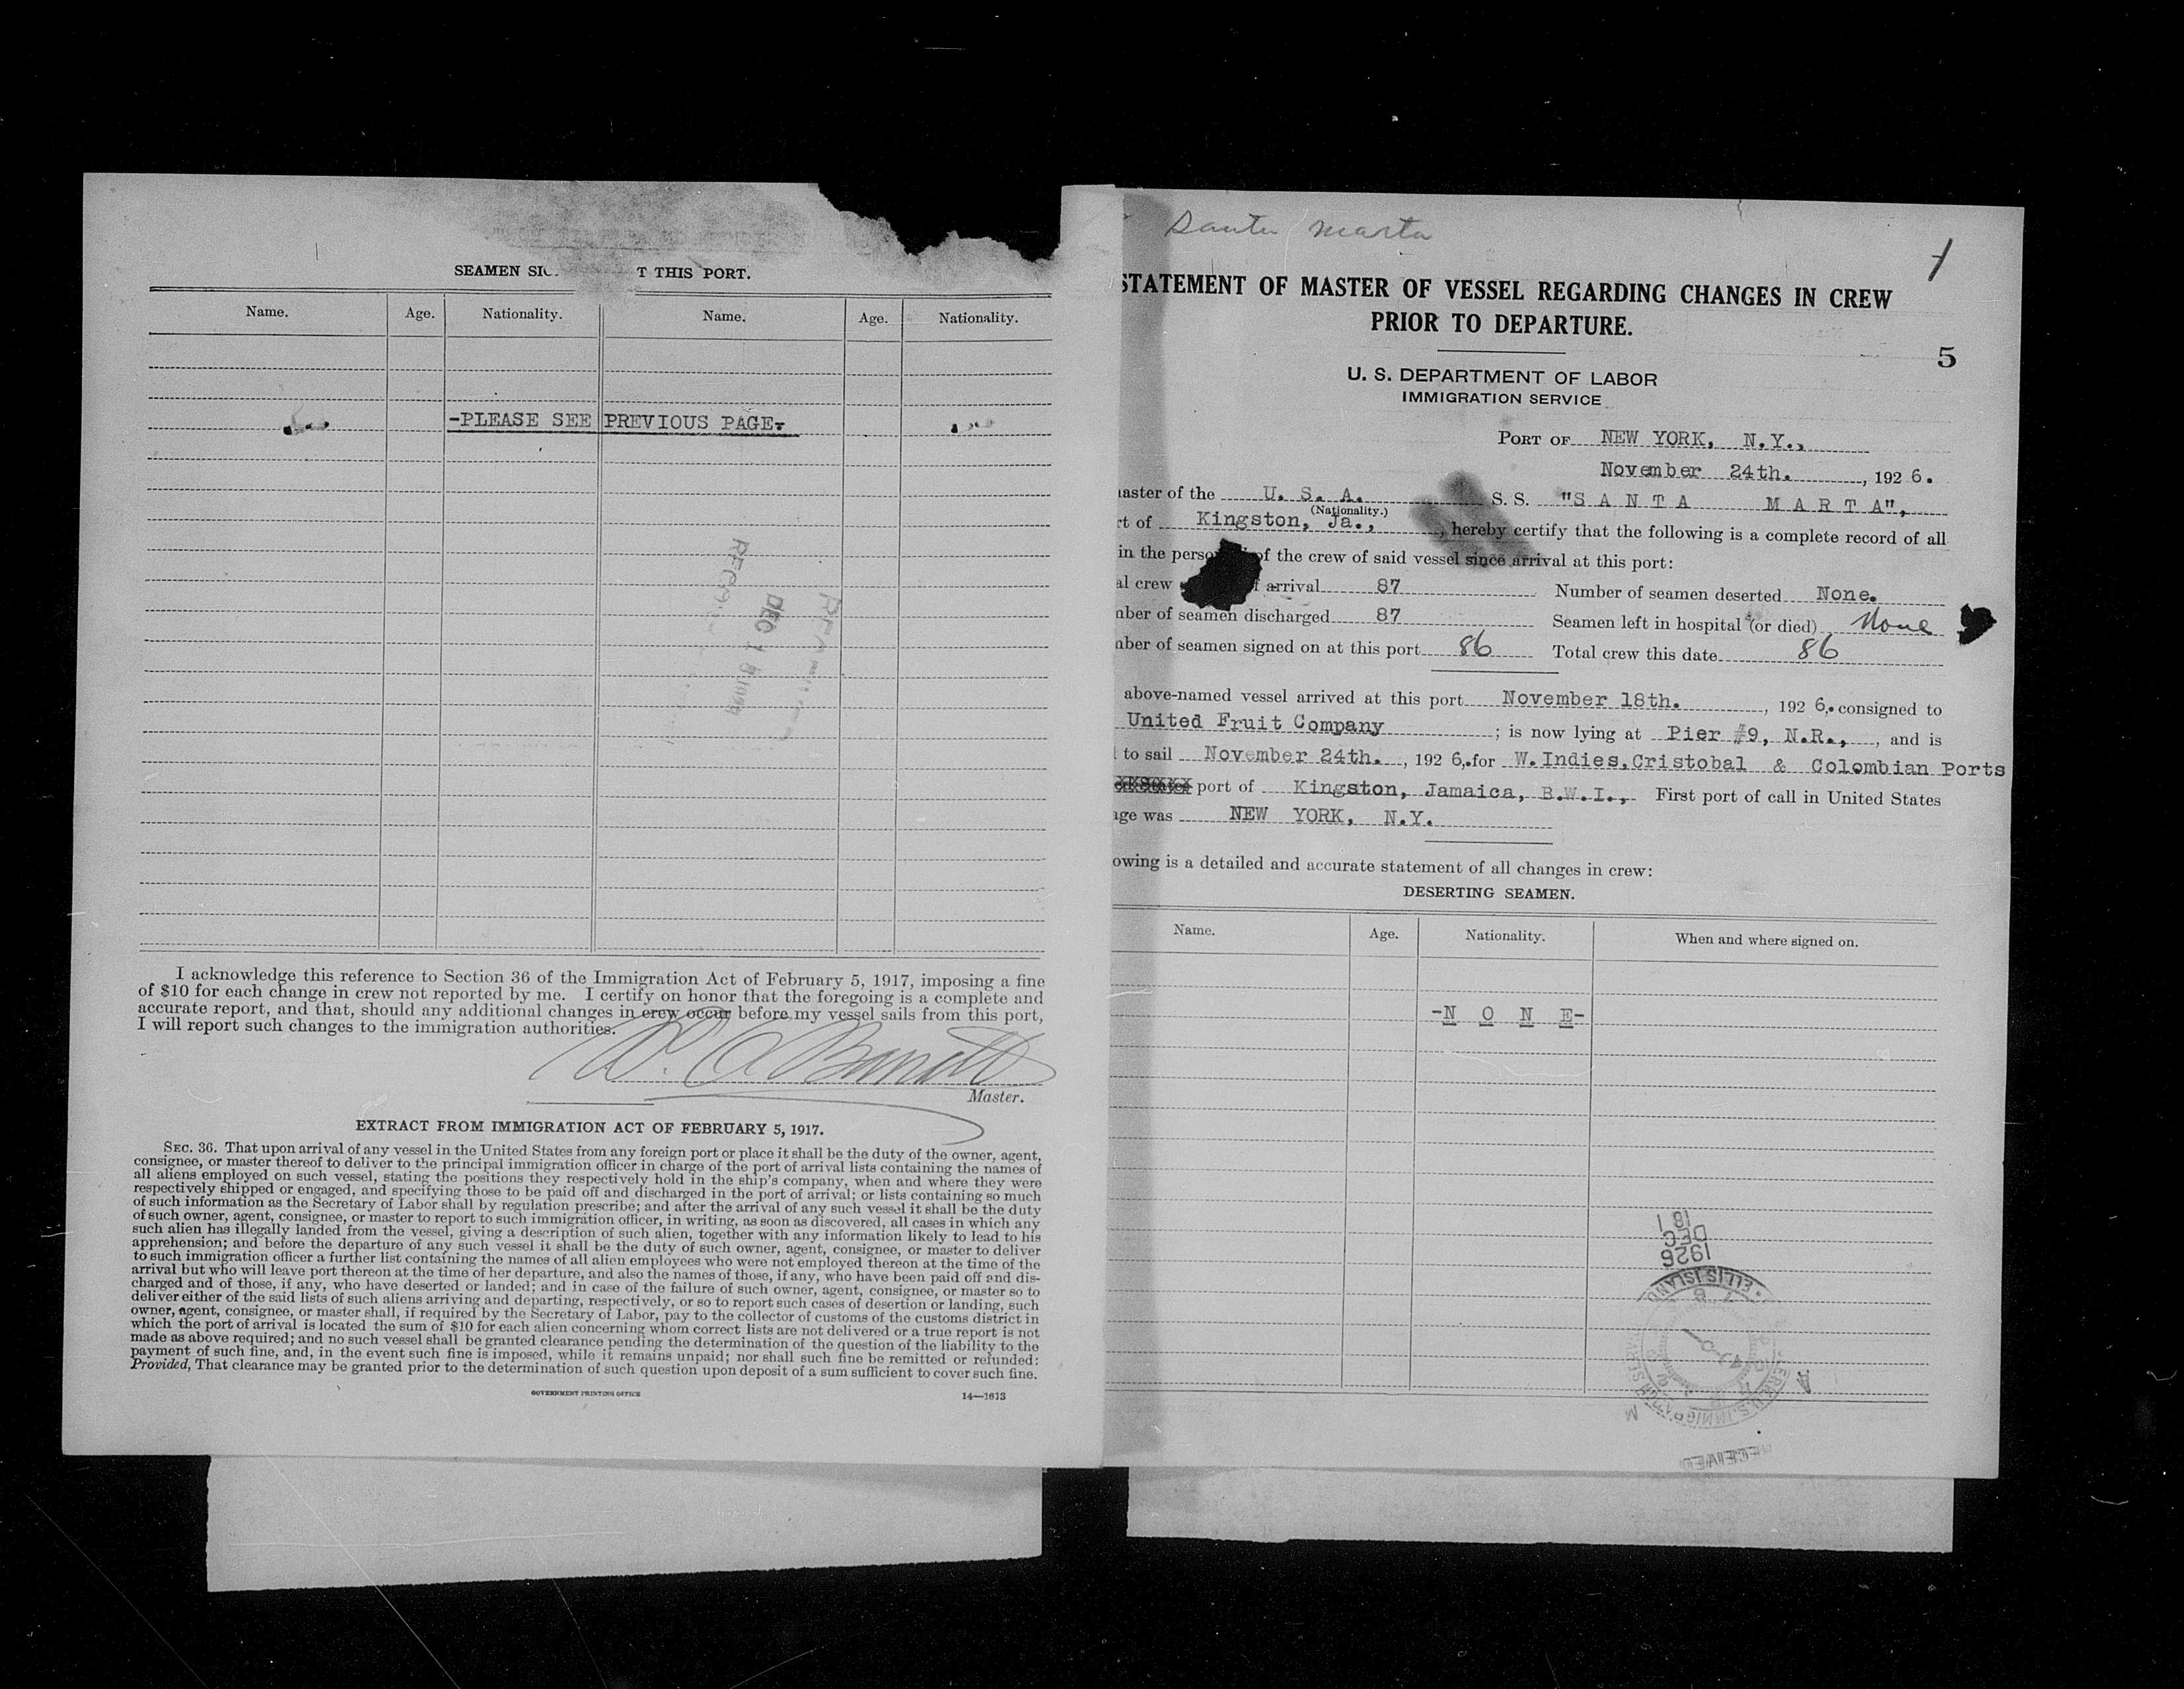 SEAMEN SI T THIS PORT.
Name. Age. Nationality. Name. Age. Nationality.
-PLEASE SEE PREVIOUS PAGE-
DEC 18
I acknowledge this reference to Section 36 of the Immigration Act of February 5, 1917, imposing a fine
of $10 for each change in crew not reported by me. I certify on honor that the foregoing is a complete and
accurate report, and that, should any additional changes in crew occur before my vessel sails from this port,
I will report such changes to the immigration authorities.
Master.
EXTRACT FROM IMMIGRATION ACT OF FEBRUARY 5, 1917.
SEC. 36. That upon arrival of any vessel in the United States from any foreign port or place it shall be the duty of the owner, agent,
consignee, or master thereof to deliver to the principal immigration officer in charge of the port of arrival lists containing the names of
all aliens employed on such vessel, stating the positions they respectively hold in the ship's company, when and where they were
respectively shipped or engaged, and specifying those to be paid off and discharged in the port of arrival; or lists containing so much
of such information as the Secretary of Labor shall by regulation prescribe; and after the arrival of any such vessel it shall be the duty
of such owner, agent, consignee, or master to report to such immigration officer, in writing, as soon as discovered, all cases in which any
such alien has illegally landed from the vessel, giving a description of such alien, together with any information likely to lead to his
apprehension; and before the departure of any such vessel it shall be the duty of such owner, agent, consignee, or master to deliver
to such immigration officer a further list containing the names of all alien employees who were not employed thereon at the time of the
arrival but who will leave port thereon at the time of her departure, and also the names of those, if any, who have been paid off and dis-
charged and of those, if any, who have deserted or landed; and in case of the failure of such owner, agent, consignee, or master so to
deliver either of the said lists of such aliens arriving and departing, respectively, or so to report such cases of desertion or landing, such
owner, agent, consignee, or master shall, if required by the Secretary of Labor, pay to the collector of customs of the customs district in
which the port of arrival is located the sum of $10 for each alien concerning whom correct lists are not delivered or a true report is not
made as above required; and no such vessel shall be granted clearance pending the determination of the question of the liability to the
payment of such fine, and, in the event such fine is imposed, while it remains unpaid; nor shall such fine be remitted or refunded:
Provided, That clearance may be granted prior to the determination of such question upon deposit of a sum sufficient to cover such fine.
GOVERNMENT PRINTING OFFICE 14—1613
Santa Marta
1
STATEMENT OF MASTER OF VESSEL REGARDING CHANGES IN CREW
PRIOR TO DEPARTURE.
5
U. S. DEPARTMENT OF LABOR
IMMIGRATION SERVICE
PORT OF NEW YORK, N.Y.,
November 24th. , 192 6.
aster of the U. S. A. S. S. "S A N T A M A R T A",
(Nationality.)
rt of Kingston, Ja., , hereby certify that the following is a complete record of all
in the perso of the crew of said vessel since arrival at this port:
al crew f arrival 87 Number of seamen deserted None.
ber of seamen discharged 87 Seamen left in hospital (or died) None
ber of seamen signed on at this port 86 Total crew this date 86
above-named vessel arrived at this port November 18th. , 192 6,. consigned to
United Fruit Company ; is now lying at Pier #9, N.R., , and is
to sail November 24th. , 192 6,. for W.Indies,Cristobal & Colombian Ports
port of Kingston, Jamaica, B.W.I., First port of call in United States
ge was NEW YORK, N.Y.
owing is a detailed and accurate statement of all changes in crew:
DESERTING SEAMEN.
Name. Age. Nationality. When and where signed on.
-N O N E-
18 1
DEC
1926
ELLIS ISLAND
RECEIVED